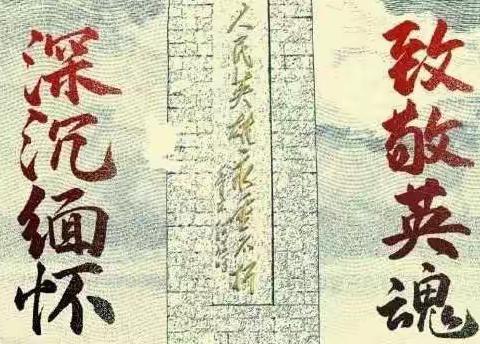 致敬英魂
人民英雄永垂不朽
深沉缅怀